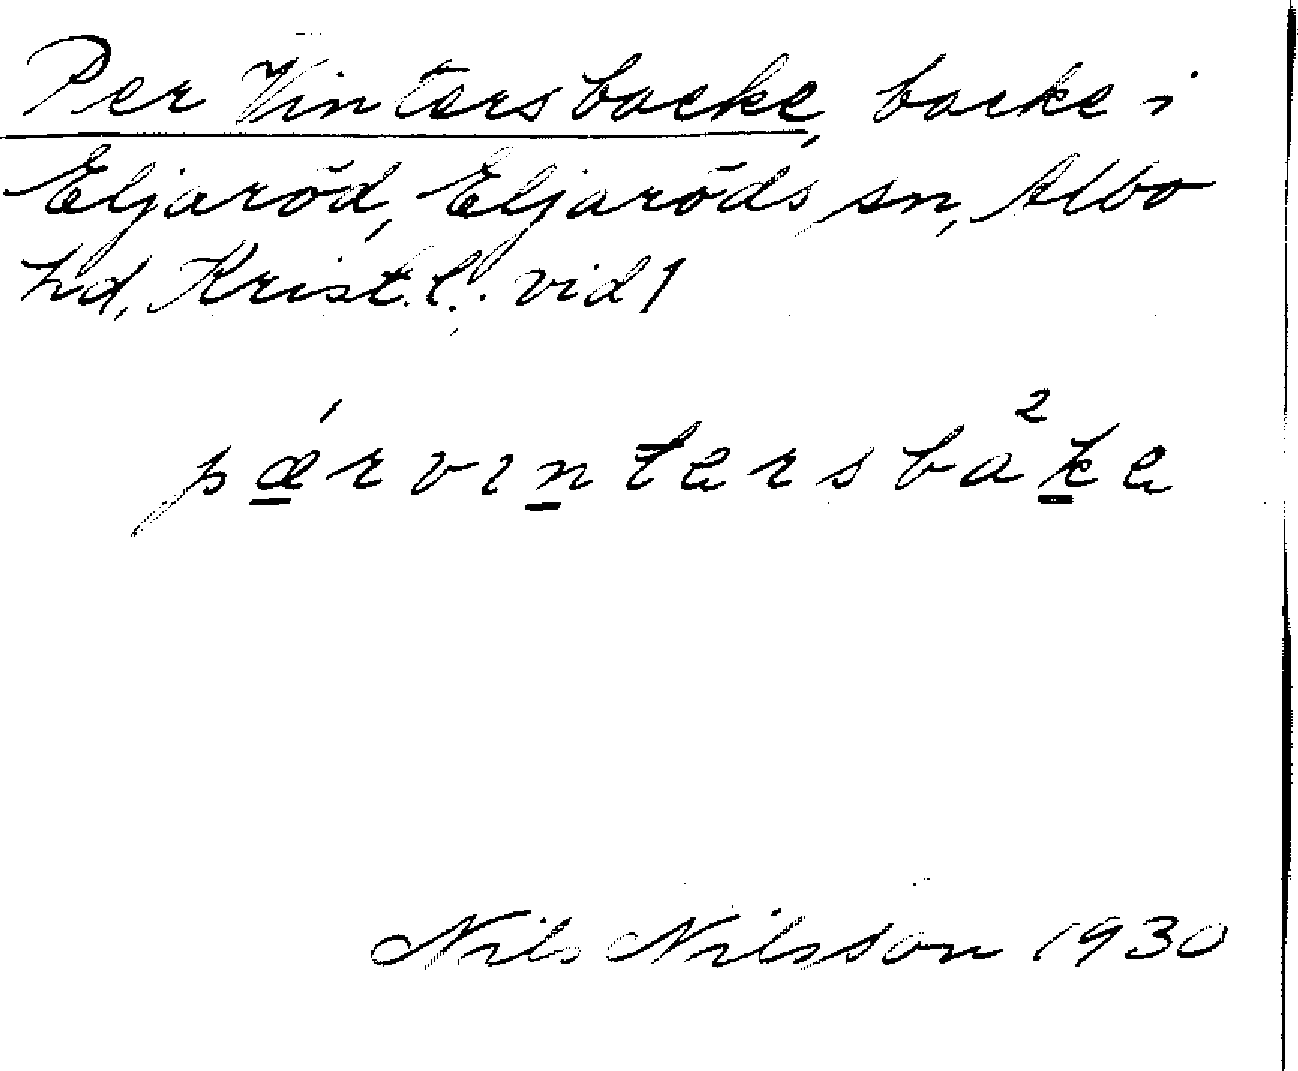 Per Vintersbacke, backe i
Eljaröd, Eljaröds sn, Albo
hd, Krist. l. vid 1
pǽrvintersba²ke
Nils Nilsson 1930